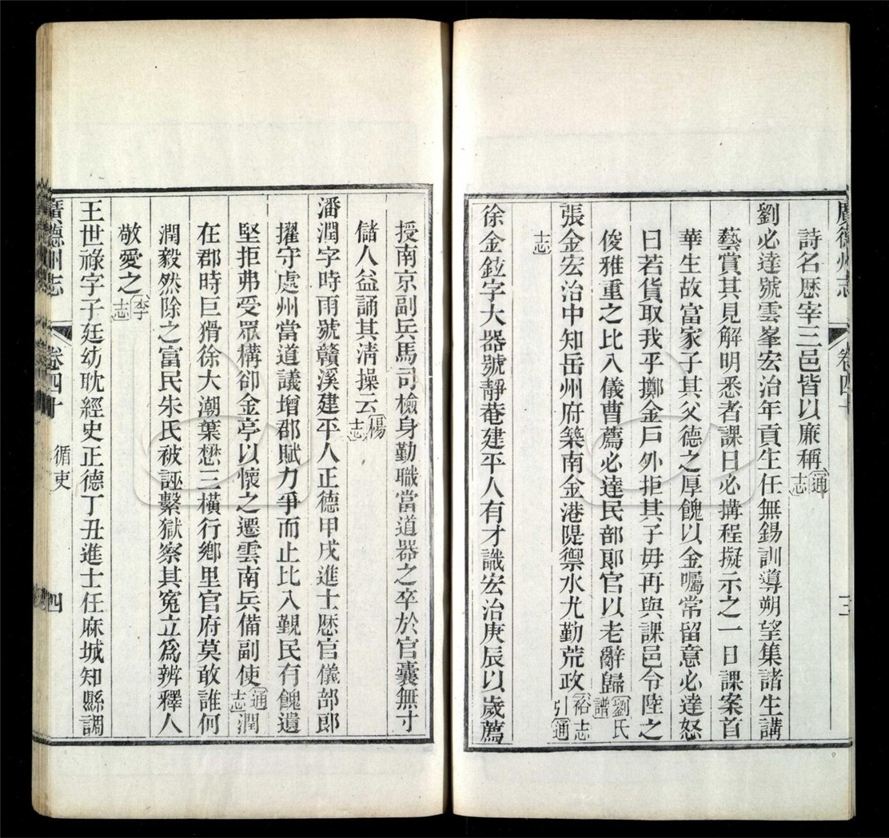 廣德州志
卷四十
三
詩名歴宰三邑皆以廉稱通志
劉必達號雲峯宏治年貢生任無錫訓導朔望集諸生講
藝賞其見解明悉者課日必搆程擬示之一日課案首
華生故富家子其父德之厚餽以金囑常留意必達怒
曰若貨取我乎擲金戶外拒其子毋再與課邑令陸之
俊雅重之比入儀曹薦必達民部郎官以老辭歸劉氏譜
張金宏治中知岳州府築南金港隄禦水尤勤荒政裕志引通
志
徐金鉝字大器號靜菴建平人有才識宏治庚辰以歲薦
授南京副兵馬司檢身勤職當道器之卒於官囊無寸
儲人益誦其清操云楊志
潘潤字時雨號贛溪建平人正德甲戌進士歴官儀部郎
擢守處州當道議增郡賦力爭而止比入覲民有餽遺
堅拒弗受眾構卻金亭以懷之遷雲南兵備副使通志潤
在郡時巨猾徐大潮葉懋三橫行鄉里官府莫敢誰何
潤毅然除之富民朱氏被誣繫獄察其冤立爲辨釋人
敬愛之李志
王世祿字子廷幼耽經史正德丁丑進士任麻城知縣調
廣德州志
卷四十
循吏
四